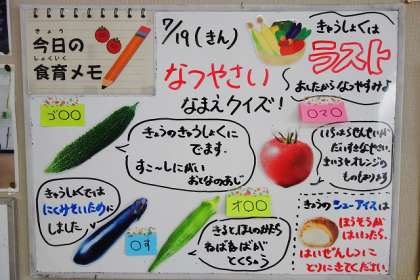 きょう
今日の
しょくいく
食育メモ
7/19(きん)
なつやさい
なまえクイズ!
きゅうしょくは
ラスト
あしたから なつやすみよ
ゴ〇〇
きょうのきゅうしょくに
でます。
すこ〜しにがい
おとなのあじ
〇マ〇
いちばんせんせいが
だいすきなやさい。
きいろやオレンジの
ものもあります
きゅうしょくでは
にくみそいために
しました
〇す
オ〇〇
きると、ほしのかたち
ねばねばが
とくちょう
きょうのシューアイスは
ほうそうが
はいったら、
はいぜんしつに
とりにきてください